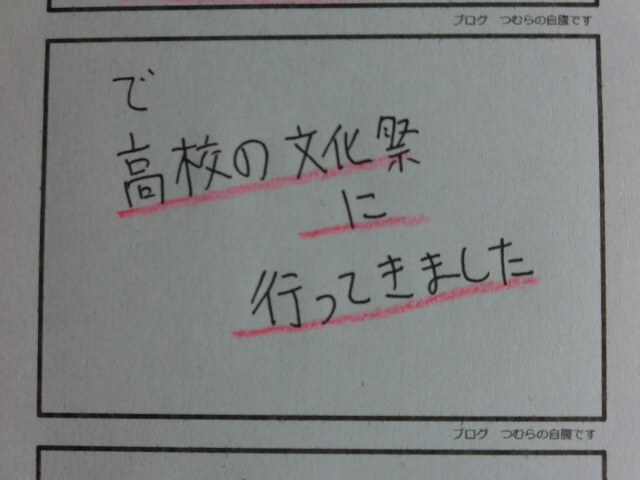 ブログ つむらの自腹です
で
高校の文化祭
に
行ってきました
ブログ つむらの自腹です